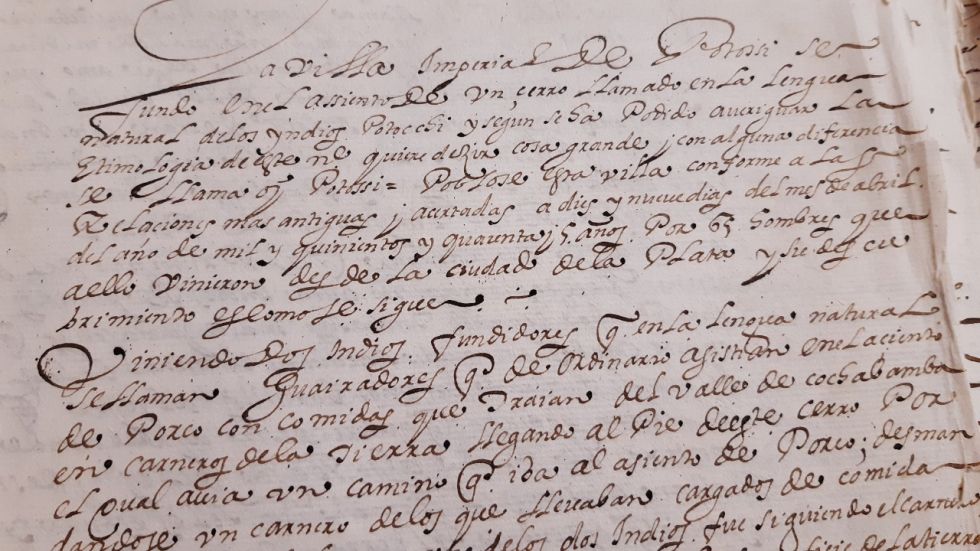 La villa Imperial De Potossi se
fundo en el assiento de un çerro llamado en la Lengua
natural de los yndios Potocchi y segun se ha Podido averiguar la
Etimologia de este ne quiere dezir cosa grande, y con alguna diferencia
se llama oy Potossi = Poblose Esta villa conforme a las
Relaciones mas antiguas y acertadas a dies y nueve dias del mes de abril
del año de mil y quinientos y quarenta y 5 años. Por 65 hombres que
a ello vinieron desde la ciudad de la Plata y su descu
brimiento es como se sigue
Viniendo Dos Indios fundidores q en la Lengua natural
se llaman Guairadores q de ordinario asistian en el aciento
de Porco con comidas que traian del valle de cochabamba
en carneros de la tierra llegando al Pie deeste cerro Por
el qual avia un camino q iba al asiento de Porco; desman
dandose un carnero de los que llevaban cargados de comida
de los dos Indios fue siguiendo el carne
de la tierra